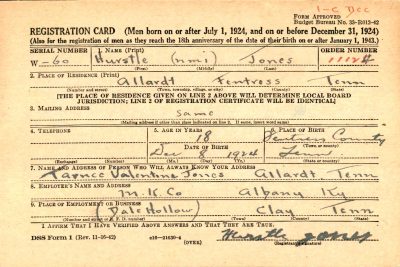 1-C Dec
FORM APPROVED
Budget Bureau No. 33-R013-42
REGISTRATION CARD (Men born on or after July 1, 1924, and on or before December 31, 1924)
(Also for the registration of men as they reach the 18th anniversary of the date of their birth on or after January 1, 1943.)
SERIAL NUMBER 1. NAME (Print) ORDER NUMBER
W-60 Hurstle (nmi) Jones 11124
(First) (Middle) (Last)
2. PLACE OF RESIDENCE (Print)
Allardt Fentress Tenn
(Number and street) (Town, township, village, or city) (County) (State)
[THE PLACE OF RESIDENCE GIVEN ON LINE 2 ABOVE WILL DETERMINE LOCAL BOARD
JURISDICTION; LINE 2 OF REGISTRATION CERTIFICATE WILL BE IDENTICAL]
3. MAILING ADDRESS
Same
[Mailing address if other than place indicated on line 2. If same, insert word same]
4. TELEPHONE 5. AGE IN YEARS 6. PLACE OF BIRTH
18 Fentress County
DATE OF BIRTH (Town or county)
Dec 8 1924 Tenn
(Exchange) (Number) (Mo.) (Day) (Yr.) (State or country)
7. NAME AND ADDRESS OF PERSON WHO WILL ALWAYS KNOW YOUR ADDRESS
Valentine Jones Allardt Tenn
8. EMPLOYER'S NAME AND ADDRESS
M.K. Co Albany Ky
9. PLACE OF EMPLOYMENT OR BUSINESS
(Dale Hollow) Clay Tenn
(Number and street or R. F. D. number) (Town) (County) (State)
I AFFIRM THAT I HAVE VERIFIED ABOVE ANSWERS AND THAT THEY ARE TRUE.
DSS Form 1 (Rev. 11-16-42) (OVER) Hurstle Jones
(Registrant's signature)